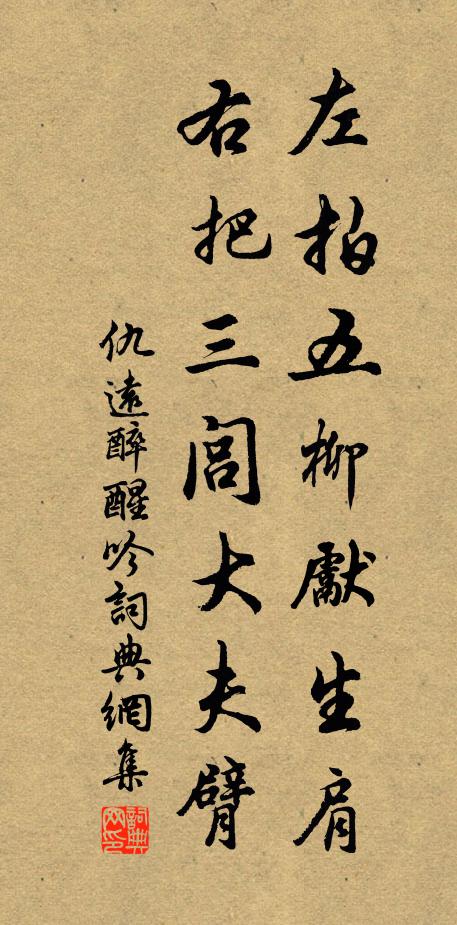 左拍五柳獻生肩
右把三閭大夫臂
仇遠醉醒吟詞典網集
詞典網印